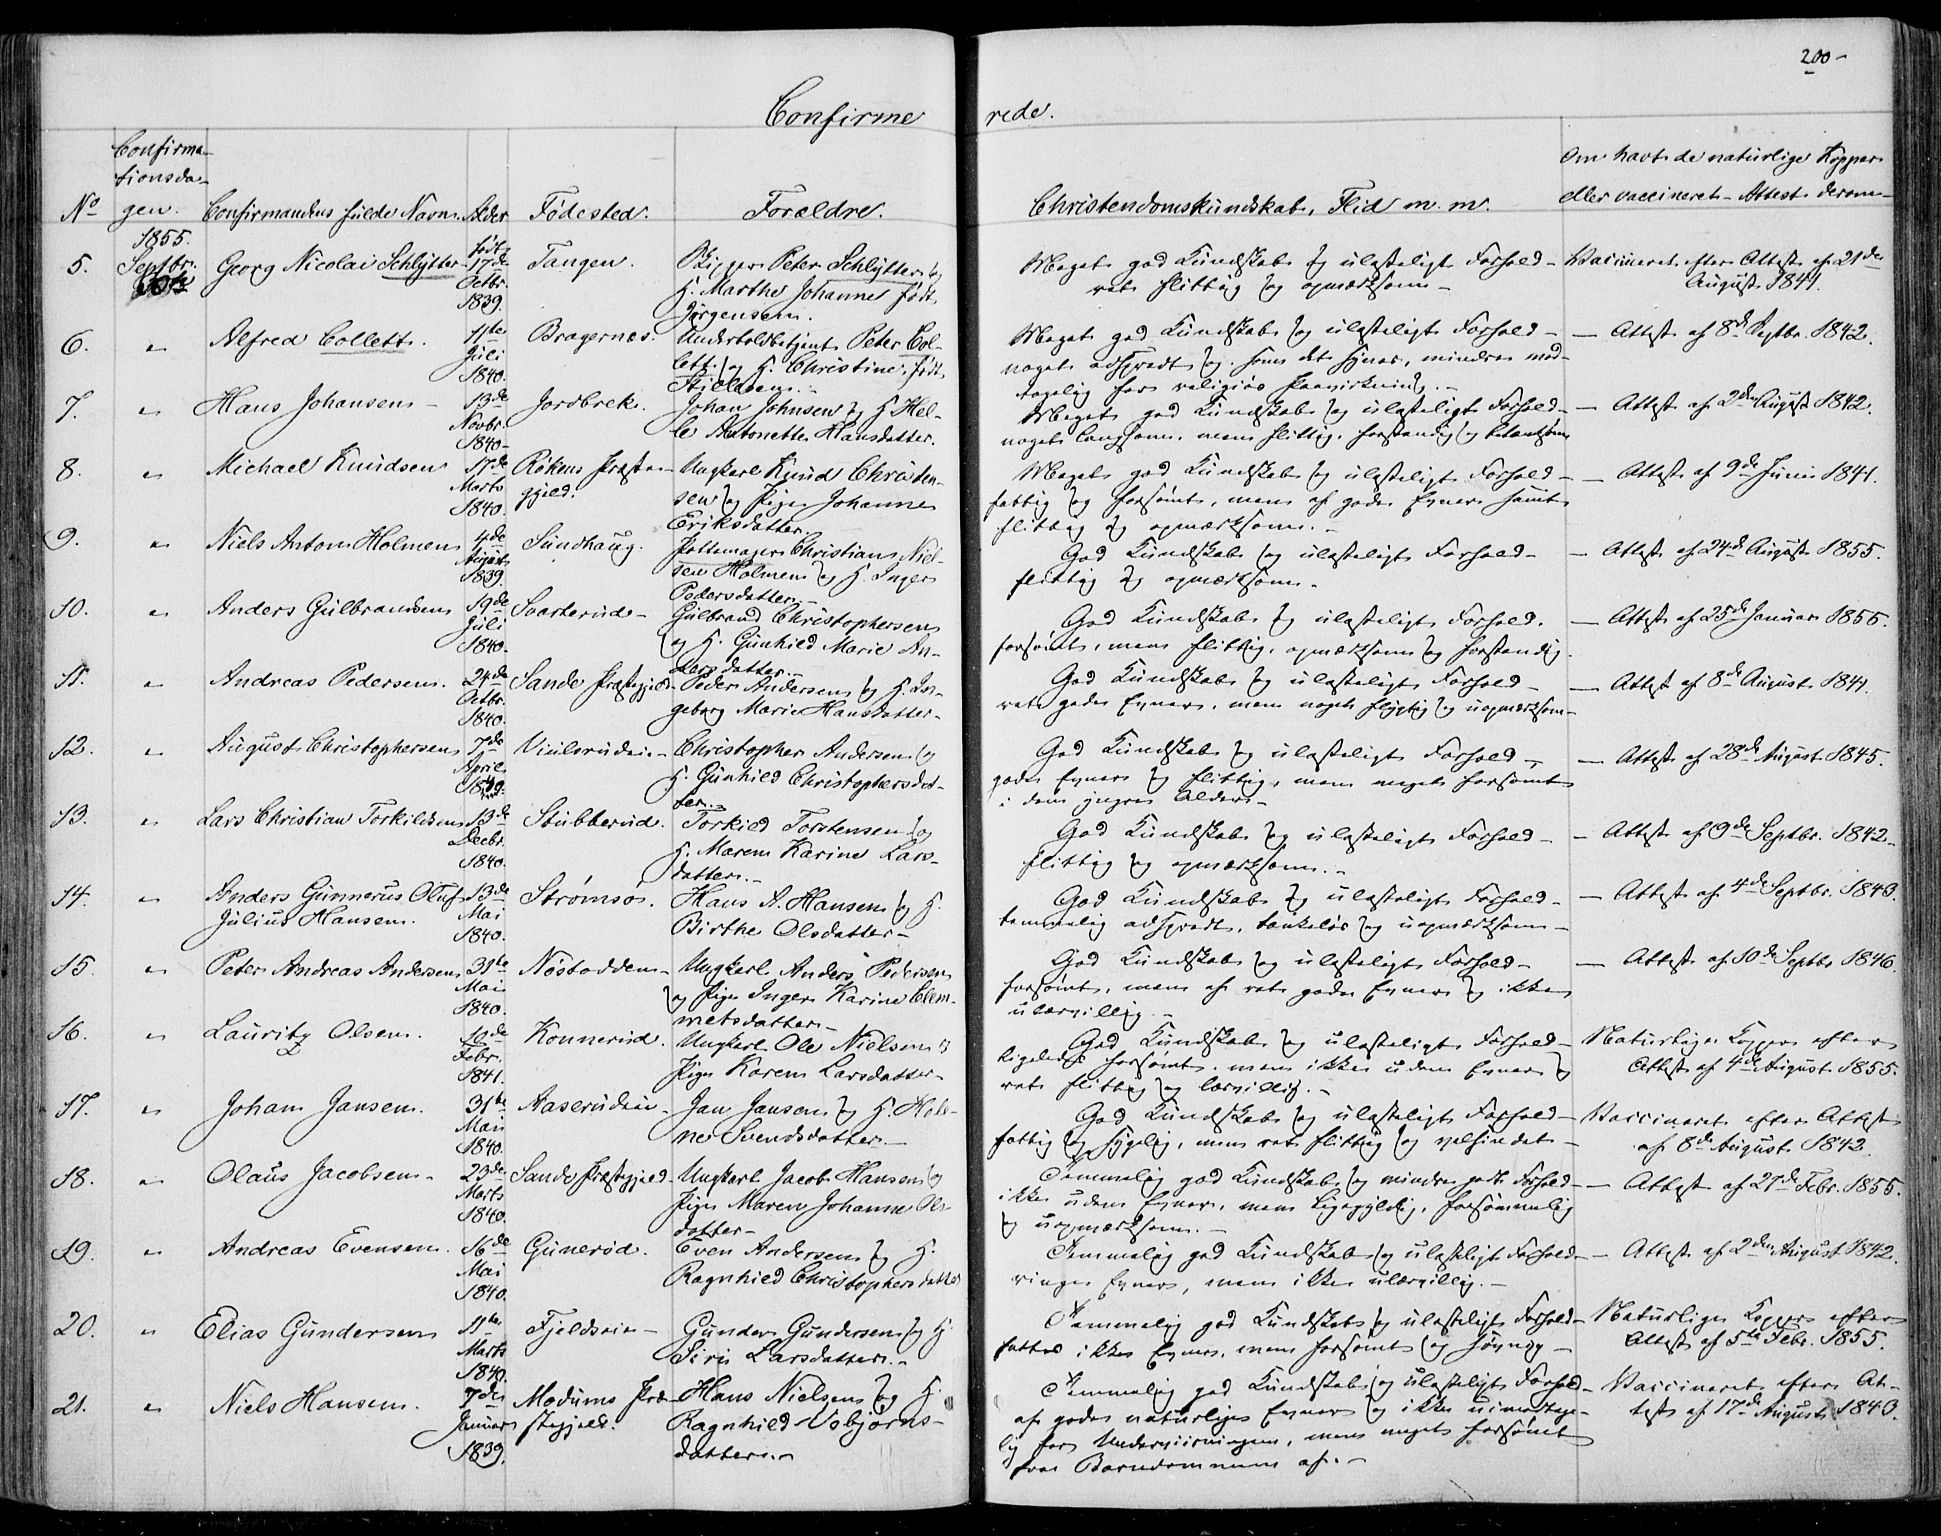 200-
Confirme rede.
No
Confirma-
tionsda-
gen.
Confirmandens fulde Navn.
Alder
Fødested.
Forældre.
Christendomskundskab, Flid m. m.
Om havt de naturlige Kopper
eller vaccineret - Attest derom-
1855.
5. Septbr.
Georg Nicolai Schlytter
født
17de
Octbr.
1839.
Tangen.
Peter Schlytter og
H. Marthe Johanne født
Jørgensen.
Meget god Kundskab og ulasteligt Forhold -
ret flittig og opmærksom -
Vaccineret efter Attest af 21de
August 1841.
6. "
Alfred Collett.
11te
Juli
1840.
Bragernes.
Undertoldbetjent Peter Col-
lett og H. Christine født
Meget god Kundskab og ulasteligt Forhold -
noget adspredt og, som det synes, mindre mod-
tagelig for religiøs Paavirkning. -
- Attest af 8de Septbr. 1842.
7. "
Hans Johansen -
13de
Novbr.
1840-
Jordbrek.
Johan Johnsen og H. Hel-
le Antonette Hansdatter.
Meget god Kundskab og ulasteligt Forhold -
noget langsom, men flittig, forstandig og betænksom
- Attest af 2den August 1842.
8. "
Michael Knudsen
17de
Marts
1840.
Røkens Præste-
gjeld.
Ungkarl Knud Christen-
sen og Pige Johanne
Eriksdatter.
Meget god Kundskab og ulasteligt Forhold -
fattig og forsømt, men af gode Evner samt
flittig og opmærksom. -
- Attest af 9de Juni 1841.
9. "
Niels Anton Holmen
4de
August
1839.
Sundhaug.
Pottemager Christian Niel-
sen Holmen og H. Inger
Pedersdatter.
God Kundskab og ulasteligt Forhold -
flittig og opmærksom -
- Attest af 24de August 1855.
10. "
Anders Gulbrandsen
19de
Juli
1840.
Svarterud -
Gulbrand Christophersen
og H. Gunhild Marie An-
dersdatter.
God Kundskab og ulasteligt Forhold.
forsømt, men flittig, opmærksom og forstandig.
- Attest af 25de Januar 1855.
11. "
Andreas Pedersen.
24de
Octbr.
1840.
Sande Præstegjeld -
Peder Andersen og H. In-
geborg Marie Hansdatter -
God Kundskab og ulasteligt Forhold -
ret gode Evner, men noget flygtig og uopmærksom -
- Attest af 8de August 1841.
12. "
August Christophersen
7de
April
Viulsrudeie -
Christopher Andersen og
H. Gunhild Christophersdat-
ter.
God Kundskab og ulasteligt Forhold -
gode Evner og flittig, men meget forsømt
i den yngre Alder -
- Attest af 28de August 1845.
13. "
Lars Christian Torkildsen
13de
Decbr.
1840.
Stubberud.
Torkild Torstensen og
H. Maren Karine Lars-
datter. -
God Kundskab og ulasteligt Forhold -
flittig og opmærksom. -
- Attest af 9de Septbr. 1842 -
14. "
Anders Gunnerus Oluf
Julius Hansen.
13de
Mai
1840.
Strømsø.
Hans A. Hansen og H.
Birthe Olsdatter -
God Kundskab og ulasteligt Forhold -
temmelig adspredt, tankeløs og uopmærksom -
- Attest af 4de Septbr. 1843.
15. "
Peter Andreas Andersen
31te
Mai
1840.
Nøstodden -
Ungkarl Anders Pedersen
og Pige Inger Karine Clem-
metsdatter -
God Kundskab og ulasteligt Forhold -
forsømt, men af ret gode Evner og ikke
ulærvillig. -
- Attest af 10de Septbr. 1846.
16. "
Lauritz Olsen.
Febr.
1841.
Konnerud.
Ungkarl Ole Nielsen og
Pige Karen Larsdatter -
God Kundskab og ulasteligt Forhold -
ligeledes forsømt, men ikke uden Evner og
ret flittig og lærvillig. -
Naturlige Kopper efter
Attest af 4de August 1855.
17. "
Johan Jansen.
31te
Mai
1840.
Aaserudeie -
Jan Jansen og H. Hele-
ne Svendsdatter. -
God Kundskab og ulasteligt Forhold -
fattig og sygelig, men ret flittig og velsindet -
Vaccineret efter Attest
af 8de August 1842.
18. "
Olaus Jacobsen -
23de
Marts
1840.
Sande Præstegjeld -
Ungkarl Jacob Hansen og
Pige Maren Johanne Ols-
datter -
Temmelig god Kundskab og mindre godt Forhold -
ikke uden Evner, men ligegyldig, forsømmelig
og uopmærksom. -
- Attest af 27de Febr. 1855.
19. "
Andreas Evensen.
16de
Mai
1840.
Gunerød.
Even Andersen og H.
Ragnhild Christophersdatter
Temmelig god Kundskab og ulasteligt Forhold -
ringe Evner, men ikke ulærvillig. -
- Attest af 2den August 1842.
20. "
Elias Gundersen
11te
Marts
1840.
Fjeldseie -
Gunder Gundersen og H.
Siri Larsdatter. -
Temmelig god Kundskab og ulasteligt Forhold -
fattes ikke Evner, men forsømt og
Naturlige Kopper efter
Attest af 5te Febr. 1855.
21. "
Niels Hansen.
7de
Januar
1839.
Modums Præ-
stegjeld.
Hans Nielsen og H.
Ragnhild
datter. -
Temmelig god Kundskab og ulasteligt Forhold -
af gode naturlige Evner og ikke uimodtage-
lig for Underviisningen, men meget forsømt
fra Barndommen af. -
Vaccineret efter At-
test af 17de August 1843.